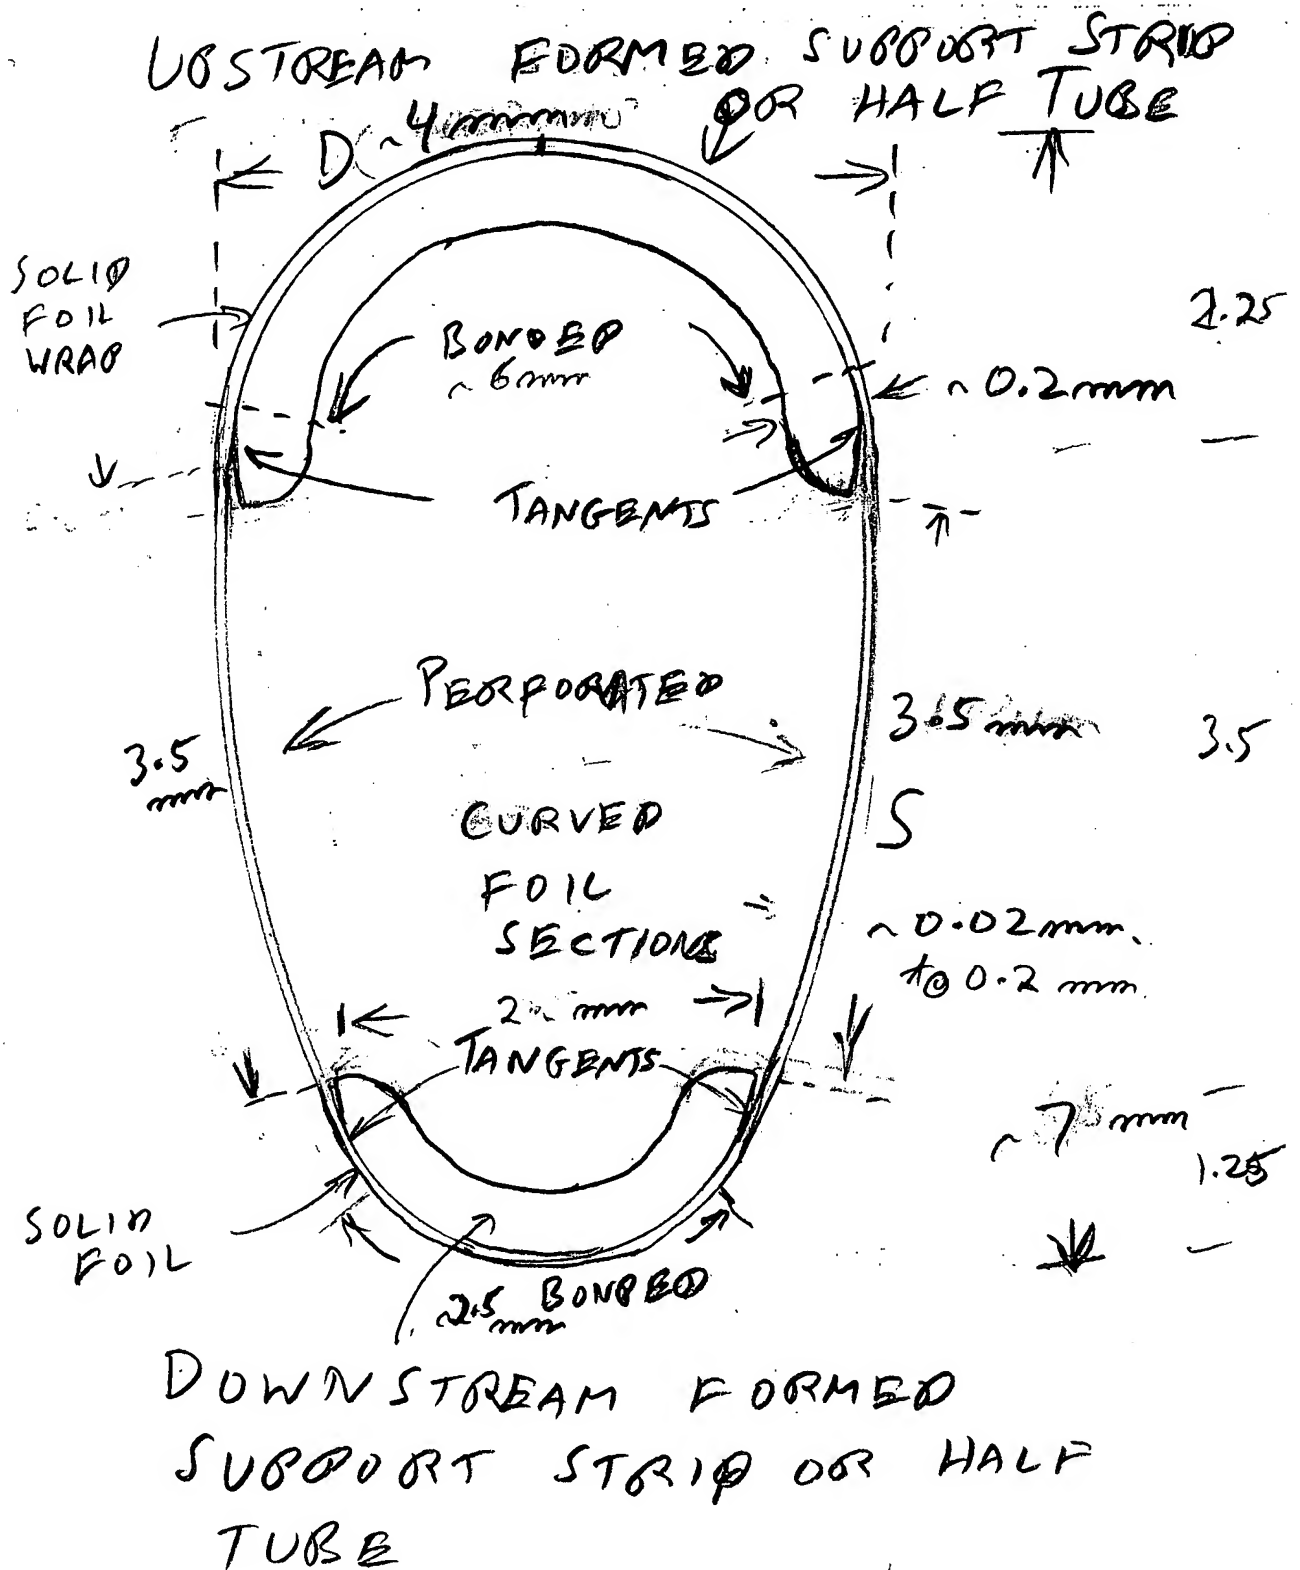 UPSTREAM FORMED SUPPORT STRIP
OR HALF TUBE
D ~4mm
SOLID
FOIL
WRAP
BONDED
~6mm
2.25
~0.2mm
TANGENTS
PERFORATED
3.5
mm
3.5mm
3.5
S
CURVED
FOIL
SECTIONS
~0.02mm.
to 0.2 mm
2 mm
TANGENTS
~7 mm
1.25
SOLID
FOIL
~2.5 BONDED
mm
DOWNSTREAM FORMED
SUPPORT STRIP OR HALF
TUBE